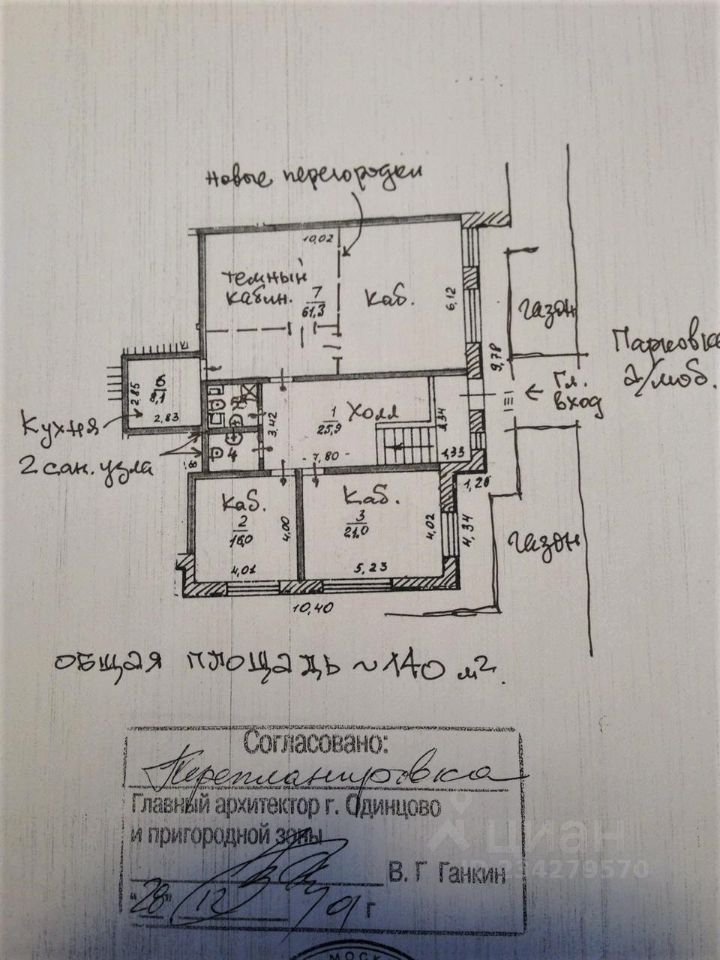 новые перегородки
10,02
темный
кабин.
7
61,3
каб.
6,12
газон
9,78
Парковка
2/моб.
← Гл.
вход
6
8,1
2,85
2,83
Кухня
2 сан. узла
3,42
1
25,9
Холл
7,80
1,33
1,20
4
Каб.
2
16,0
4,00
4,01
Каб.
3
21,0
4,02
5,23
4,34
газон
10,40
общая площадь ~140 м².
Согласовано:
Перепланировка
Главный архитектор г. Одинцово
и пригородной зоны
В. Г Ганкин
"28" 12 01 г
циан
МОСК